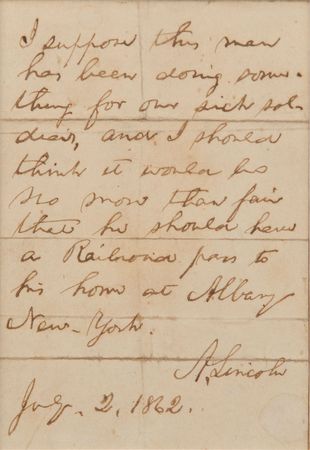 I suppose this man
has been doing some-
thing for our sick sol-
diers, and I should
think it would be
no more than fair
that he should have
a Railroad pass to
his home at Albany
New-York.
A. Lincoln
July 2, 1862.